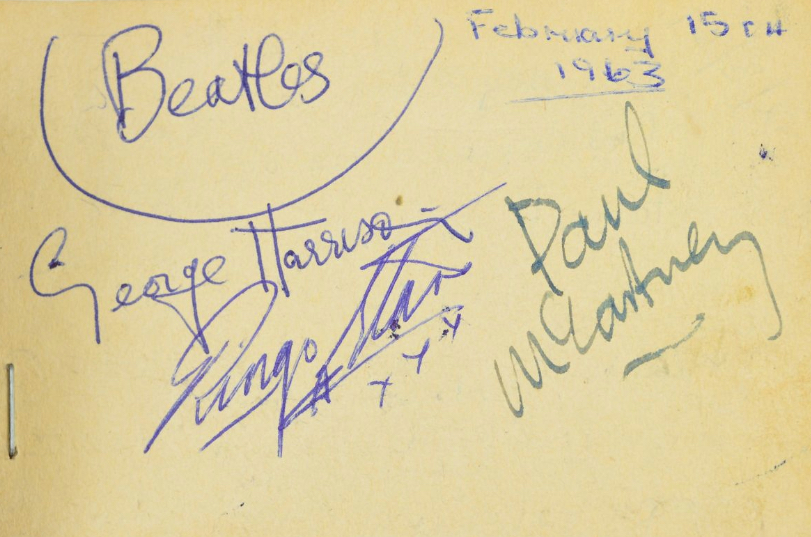 Beatles
February 15TH
1963
George Harrison
Ringo Starr
xxx
Paul
McCartney